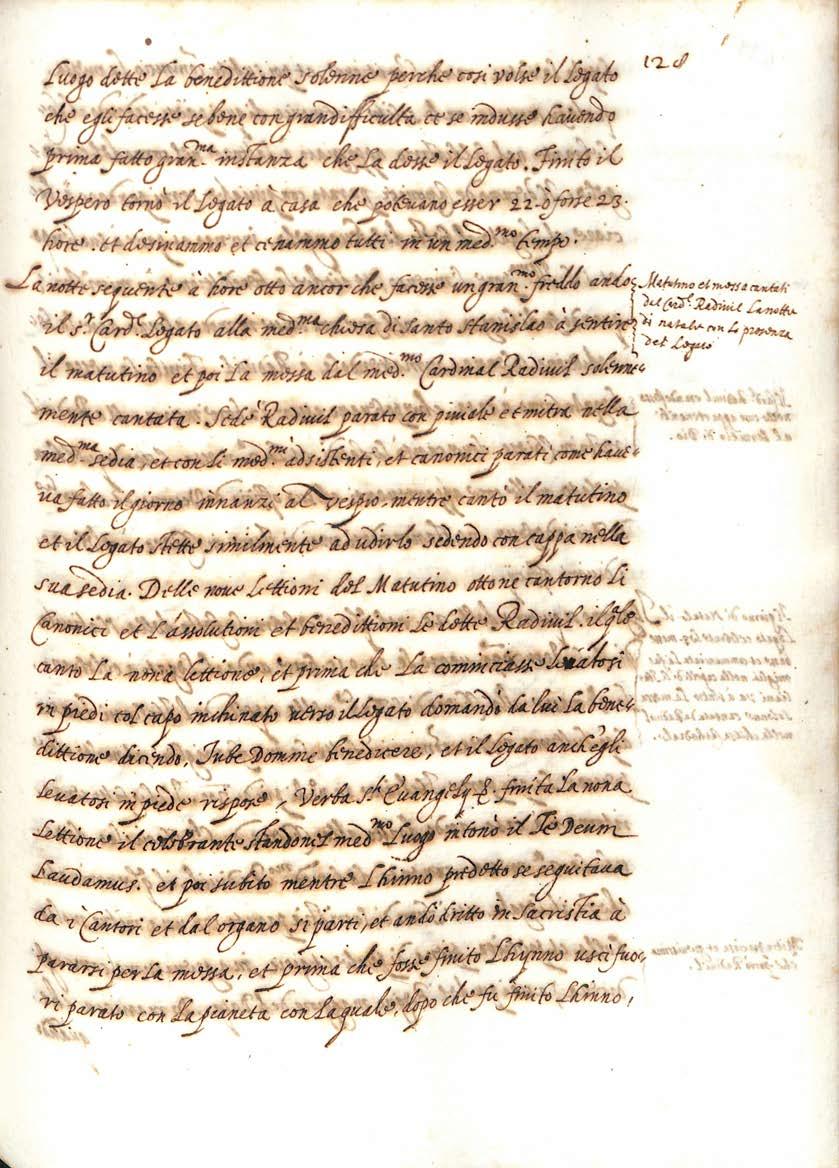 128
luogo dette la benedittione solenne perche così volse il legato
che egli facesse se bene con gran difficultà ce se indusse havendo
prima fatto gran.ma instanza che la desse il legato. Finito il
Vespero tornò il legato à casa che potevano esser 22. ò forse 23.
hore. et desinammo et cenammo tutti in un med.mo tempo.
La notte seguente à hore otto ancor che facesse un gran.mo freddo andò
il s.r Card.l Legato alla med.ma chiesa di santo Stanislao à sentire
il matutino et poi la messa dal med.mo Cardinal Radivil solenne=
mente cantata. Sedè Radivil parato con piviale et mitra nella
med.ma sedia, et con li med.mi adsistenti, et canonici parati come have=
va fatto il giorno innanzi al vespro, mentre cantò il matutino
et il legato stette similmente ad udirlo sedendo con cappa nella
sua sedia. Delle nove lettioni del Matutino otto ne cantorno li
Canonici et l'assolutioni et benedittioni le dette Radivil. il q.le
canto la nona lettione, et prima che la cominciasse levatosi
in piedi col capo inchinato verso il legato domandò da lui la bene=
dittione dicendo, Iube Domine benedicere, et il legato anch'egli
levatosi in piede rispose, Verba S.ti Evangelij &. finita la nona
lettione il celebrante stando nel med.mo luogo intonò il Te Deum
laudamus. et poi subito mentre l'hinno predetto se seguitava
da i Cantori et dal organo si partì, et andò dritto in sacristia à
pararsi per la messa, et prima che fosse finito l'hynno uscì fuo=
ri parato con la pianeta con la quale, dopo che fu finito l'hinno,
Matutino et messa cantati
dal Card.l Radivil la notte
di natale con la presenza
del legato